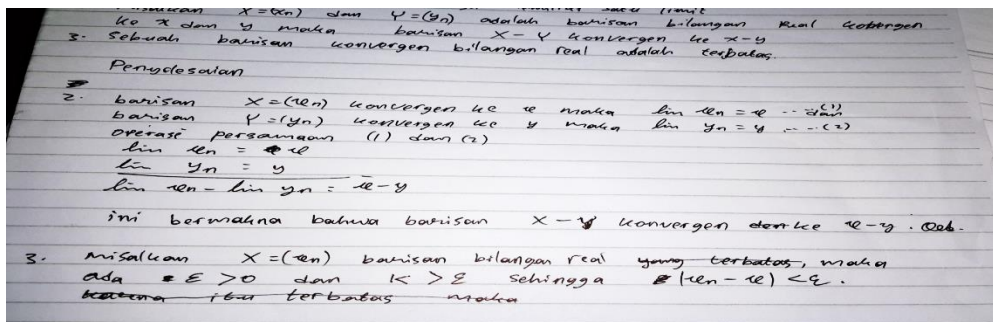 X = (xn) dan Y = (yn) adalah barisan bilangan Real kobergen
ke x dan y maka barisan X - Y konvergen ke x-y
3. Sebuah barisan konvergen bilangan real adalah terbatas.
Penyelesaian
2. barisan X = (xn) konvergen ke x maka lim xn = x ... (1)
dan
barisan Y = (yn) konvergen ke y maka lim yn = y ... (2)
operasi persamaan (1) dan (2)
lim xn = x
lim yn = y
lim xn - lim yn = x - y
ini bermakna bahwa barisan X - Y konvergen ke x - y . Qed.
3. Misalkan X = (xn) barisan bilangan real yang terbatas, maka
ada ε > 0 dan K > ε sehingga |xn - x| < ε .
karena itu terbatas maka